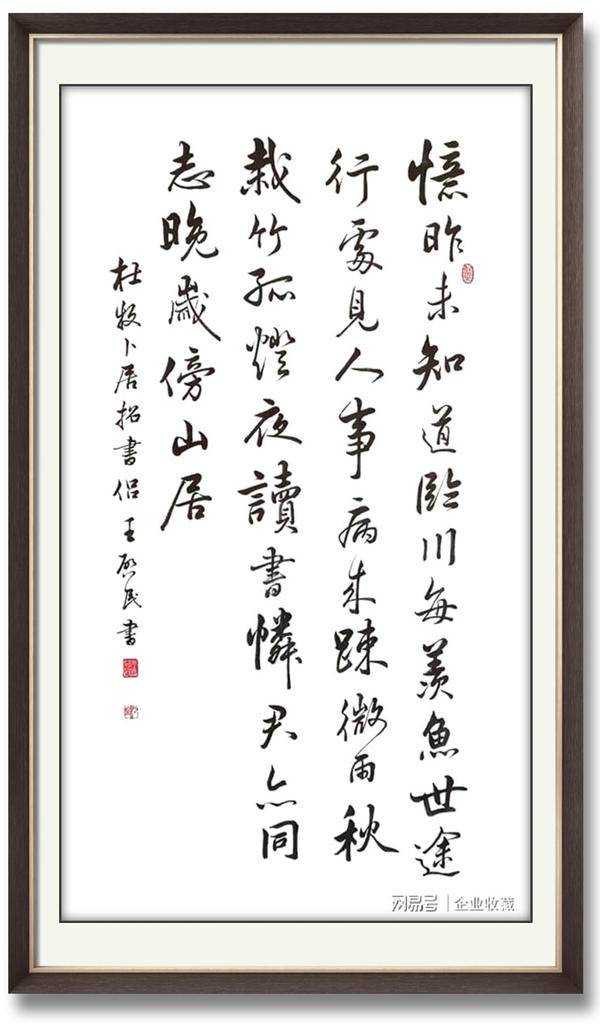 憶昨未知道臨川每羨魚世途
行處見人事病來踈微雨秋
栽竹孤燈夜讀書憐君亦同
志晚歲傍山居
杜牧卜居招書侶 王啟民書
网易号 | 企业收藏